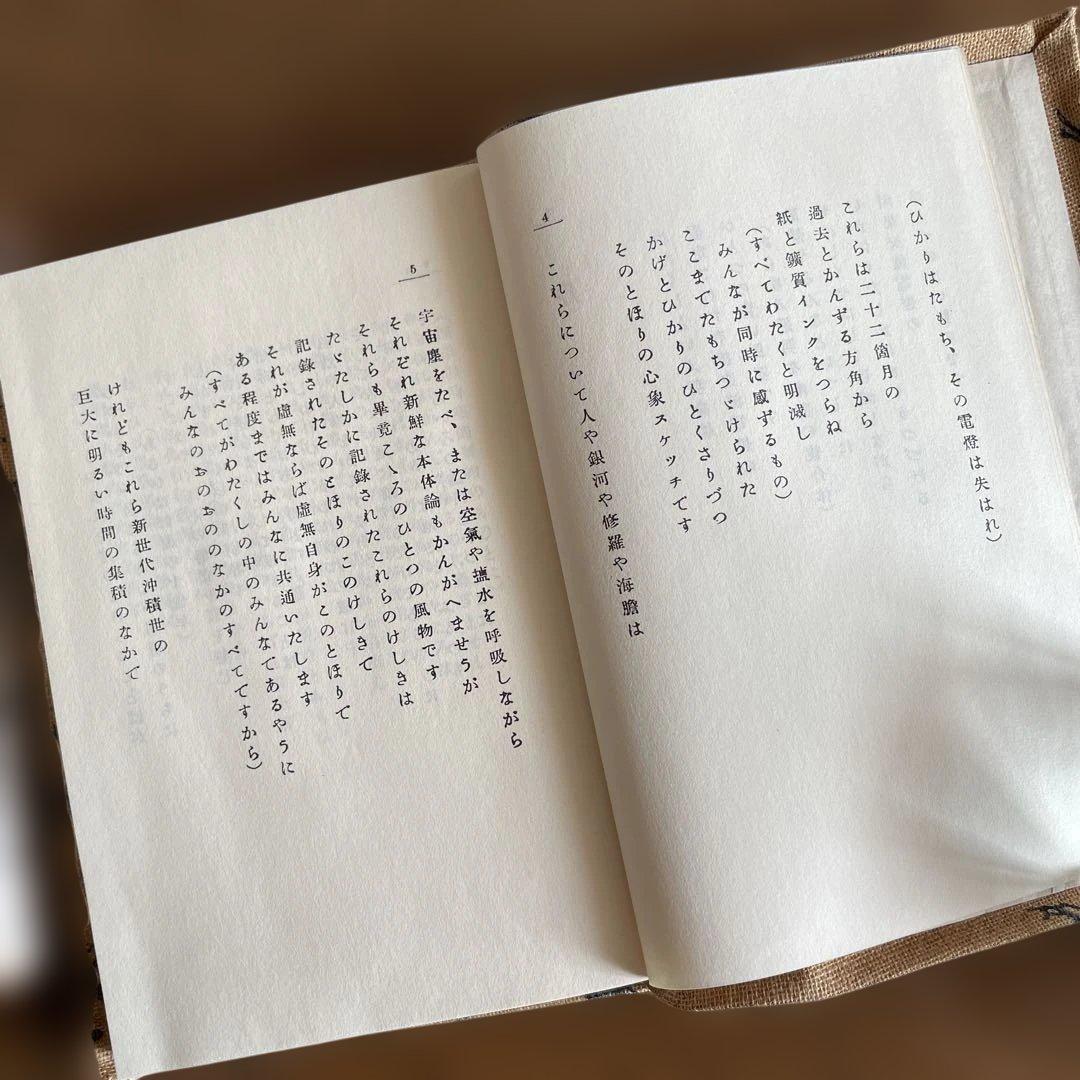 (ひかりはたもち、その電燈は失はれ)
これらは二十二箇月の
過去とかんずる方角から
紙と鑛質インクをつらね
(すべてわたくと明滅し
みんなが同時に感ずるもの)
ここまてたもちつゞけられた
かげとひかりのひとくさりづつ
そのとほりの心象スケッチです
これらについて人や銀河や修羅や海膽は
4
5
宇宙塵をたべ、または空氣や塩水を呼吸しながら
それぞれ新鮮な本体論もかんがへませうが
それらも畢竟こゝろのひとつの風物です
たゞたしかに記録されたこれらのけしきは
記録されたそのとほりのこのけしきて
それが虚無ならば虚無自身がこのとほりて
ある程度まではみんなに共通いたします
(すべてがわたくしの中のみんなであるやうに
みんなのおのおののなかのすべてですから)
けれどもこれら新世代沖積世の
巨大に明るい時間の集積のなかて